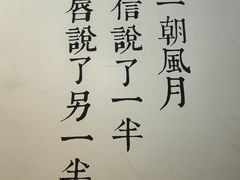 一朝風月
信說了一半
唇說了另一半